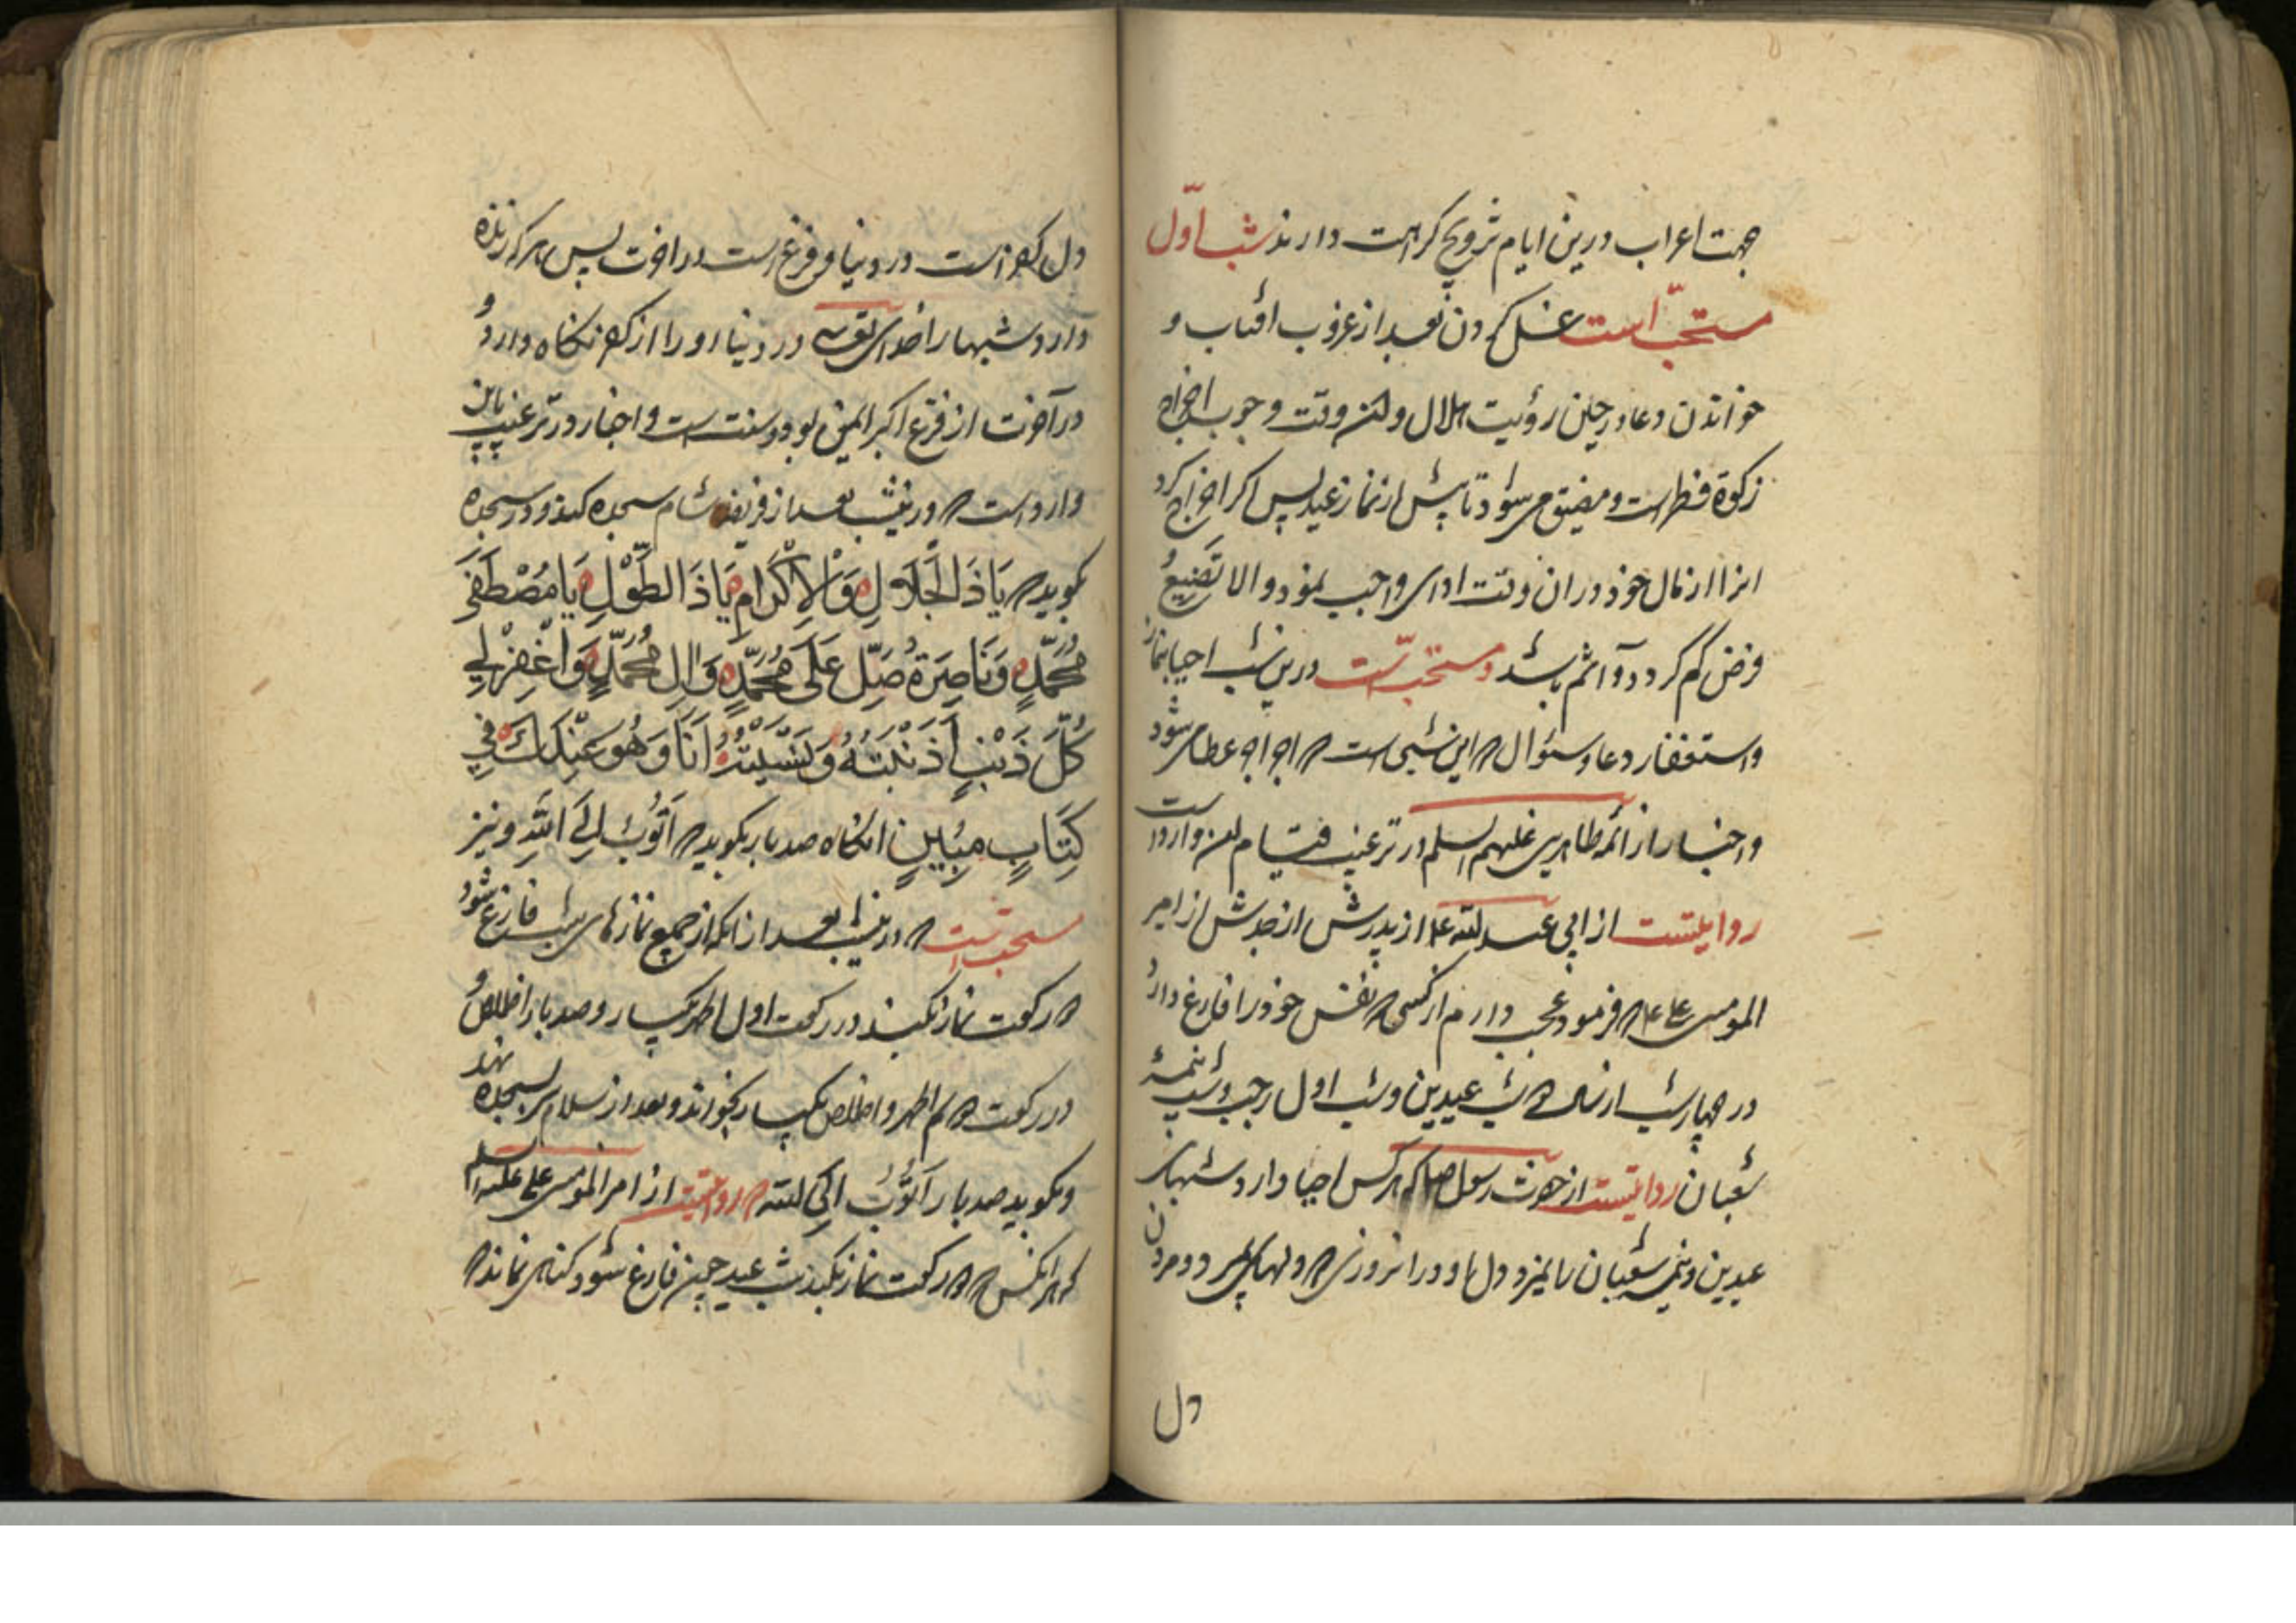 جهت اعراب درین ایام تزویج کراهت دارند شب اول
مستحب است غسل کردن بعد از غروب افتاب و
خواندن دعا در حین رؤیت هلال و وقت وجوب اخراج
زکوة فطر است و مضیق می شود تا پیش از نماز عید پس اکر اخراج کرد
انرا از مال خود در ان وقت ادای واجب نمود و الا تضییع
فرض کرد و آثم باشد و مستحب است درین شب احیا بنماز
و استغفار و دعا و سئوال که این شبی است که عطا می شود
و اخبار از ائمه طاهرین علیهم السلم در ترغیب قیام وارد است
روایتست از ابی عبدالله ع از پدرش از جدش از امیر
المومنین که فرمود عجب دارم از کسی که نفس خود را فارغ دارد
در چهار شب از سال شب عیدین و شب اول رجب و شب نیمهٔ
شعبان روایتست از حضرت رسول که هر کس احیا دارد شبهای
عیدین و نیمه شعبان را نمیرد دل او در انروزی که دلها بمیرد و مردن
دل
دل کفر است در دنیا و فزع است در اخرت پس هر که زنده
دارد شبها را خدای تعالی در دنیا او را از کفر نکاه دارد و
در آخرت از فزع اکبر ایمن بود و سنت است و اخبار در ترغیب باین
وارد است که در نیشب بعد از فریضه شام سجده کند و در سجده
بکوید که یَا ذَا الْجَلَالِ وَالْاِکْرَامِ یَا ذَا الطَّوْلِ یَا مُصْطَفِیَ
مُحَمَّدٍ وَنَاصِرَهُ صَلِّ عَلَی مُحَمَّدٍ وَاٰلِ مُحَمَّدٍ وَاغْفِرْ لِی
کُلَّ ذَنْبٍ اَذْنَبْتُهُ وَنَسَیْتُهُ اَنَا وَهُوَ عِنْدَکَ فِی
کِتَابٍ مُبِینٍ انکاه صد بار بکوید که اَتُوبُ اِلَی اللّهِ و نیز
مستحب است که در نیشب بعد از انکه از جمیع نمازهای شب فارغ شود
رکعت نماز بکند در رکعت اول الحمد یکبار و صد بار اخلاص و
در رکعت الحمد و اخلاص یکبار بخواند و بعد از سلام سر بسجده نهد
و بکوید صد بار اَتُوبُ اِلَی اللّه روایتست از امیر المومنین علی علیه السلم
که هر انکس که رکعت نماز بکند شب عید چون فارغ شود کناهی نماند که